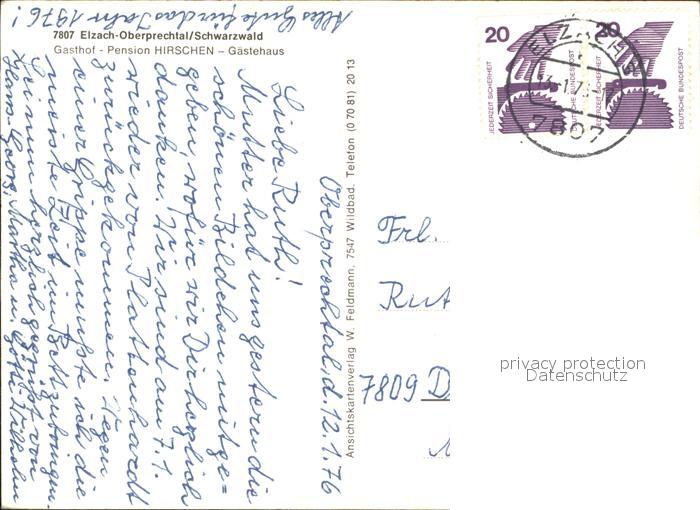 Alles Gute für das Jahr 1976!
7807 Elzach-Oberprechtal/Schwarzwald
Gasthof - Pension HIRSCHEN – Gästehaus
Oberprechtal, d. 12.1.76
Liebe Ruth!
Mutter hat uns gestern die
schönen Bildchen mitge=
geben, wofür wir Dir herzlich
danken. Wir sind am 7.1.
wieder von Plattenhardt
zurückgekommen. Wegen
einer Grippe mußte ich die
meiste Zeit im Bett zubringen.
Sei nun herzlich gegrüßt von
Hans-Georg, Martha u. Gotth. Wilhelm
Ansichtskartenverlag W. Feldmann, 7547 Wildbad, Telefon (0 70 81) 20 13
20
JEDERZEIT SICHERHEIT
DEUTSCHE BUNDESPOST
20
JEDERZEIT SICHERHEIT
DEUTSCHE BUNDESPOST
ELZACH
7807
Frl.
Rut
7809 D
privacy protection
Datenschutz